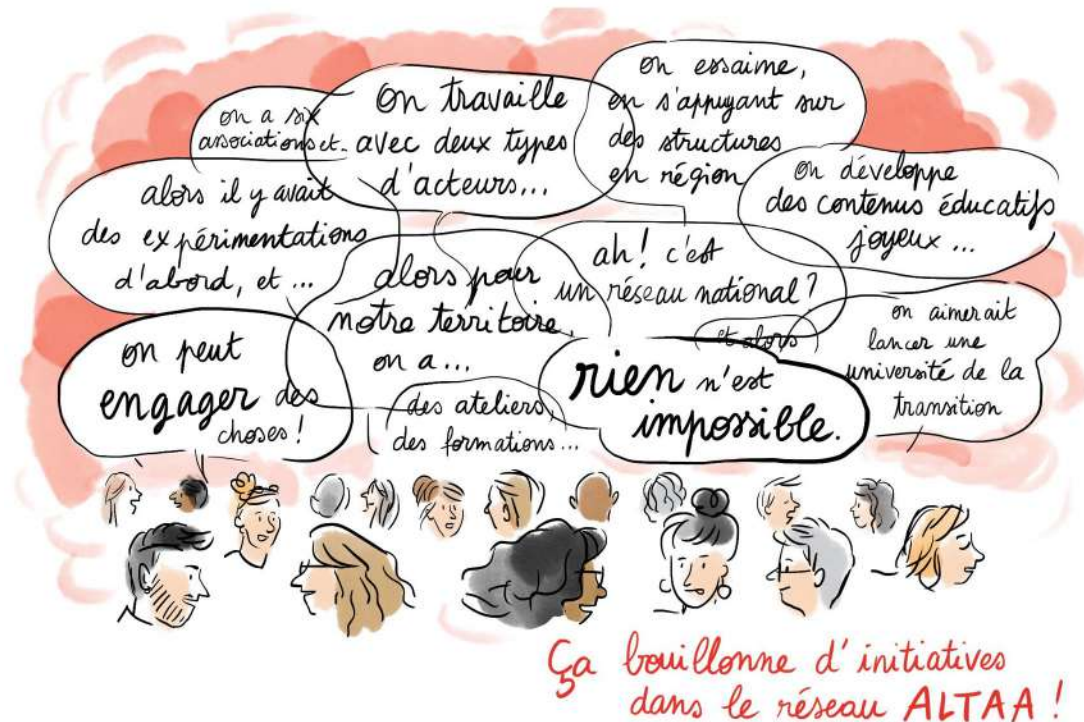 on a six
associations et...
on travaille
avec deux types
d'acteurs...
on essaime,
en s'appuyant sur
des structures
en région
alors il y avait
des expérimentations
d'abord, et ...
on développe
des contenus éducatifs
joyeux ...
alors pour
notre territoire,
on a...
ah! c'est
un réseau national?
et alors
on aimerait
lancer une
université de la
transition
on peut
engager des
choses!
des ateliers,
des formations...
rien n'est
impossible.
Ça bouillonne d'initiatives
dans le réseau ALTAA !